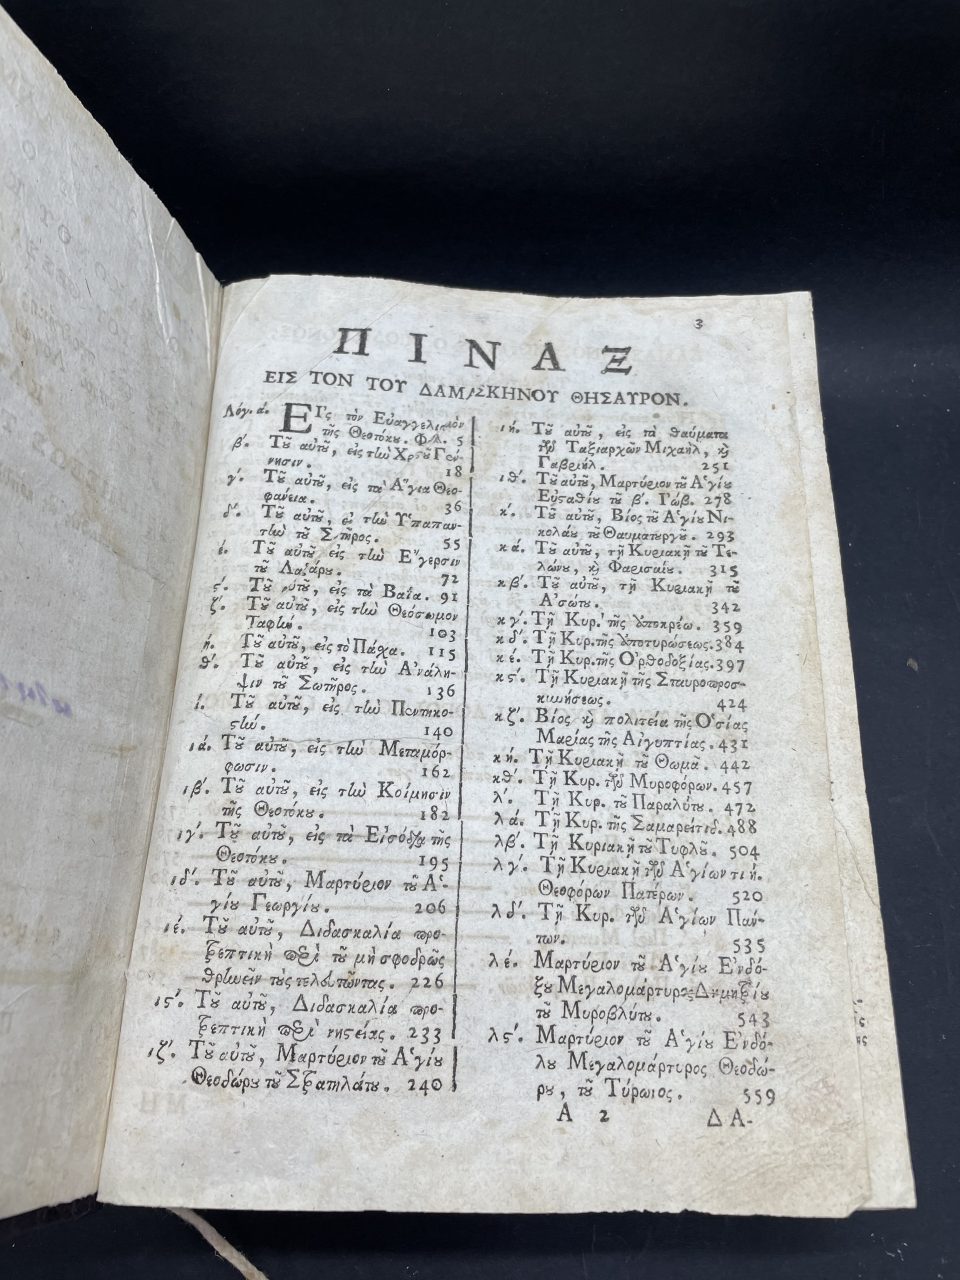 3
ΠΙΝΑΞ
ΕΙΣ ΤΟΝ ΤΟΥ ΔΑΜΑΣΚΗΝΟΥ ΘΗΣΑΥΡΟΝ.
Λόγ. ά. ΕἸς τὸν Εὐαγγελισμὸν
τῆς Θεοτόκȣ. Φύλ. 5
β΄. Τȣ͂ αὐτȣ͂, εἰς τὴν Χριστȣ͂ Γέν-
νησιν. 18
γ΄. Τȣ͂ αὐτȣ͂, εἰς τὰ Ἅγια Θεο-
φάνεια. 36
δ΄. Τȣ͂ αὐτȣ͂, εἰς τὴν Ὑπαπαν-
τὴν τȣ͂ Σωτῆρος. 55
έ. Τȣ͂ αὐτȣ͂ εἰς τὴν Ἔγερσιν
τȣ͂ Λαζάρȣ. 72
ϛ΄. Τȣ͂ αὐτȣ͂, εἰς τὰ Βαΐα. 91
ζ΄. Τȣ͂ αὐτȣ͂, εἰς τὴν Θεόσωμον
Ταφήν. 103
ή. Τȣ͂ αὐτȣ͂, εἰς τὸ Πάχα. 115
θ΄. Τȣ͂ αὐτȣ͂, εἰς τὴν Ἀνάλη-
ψιν τȣ͂ Σωτῆρος. 136
ί. Τȣ͂ αὐτȣ͂, εἰς τὴν Πεντηκο-
στήν. 140
ιά. Τȣ͂ αὐτȣ͂, εἰς τὴν Μεταμόρ-
φωσιν. 162
ιβ΄. Τȣ͂ αὐτȣ͂, εἰς τὴν Κοίμησιν
τῆς Θεοτόκȣ. 182
ιγ΄. Τȣ͂ αὐτȣ͂, εἰς τὰ Εἰσόδια τῆς
Θεοτόκȣ. 195
ιδ΄. Τȣ͂ αὐτȣ͂, Μαρτύριον τȣ͂ Ἁ-
γίȣ Γεωργίȣ. 206
ιέ. Τȣ͂ αὐτȣ͂, Διδασκαλία προ-
τρεπτικὴ περὶ τȣ͂ μὴ σφοδρῶς
θρηνεῖν τȣ̀ς τελευτῶντας. 226
ιϛ΄. Τȣ͂ αὐτȣ͂, Διδασκαλία προ-
τρεπτικὴ περὶ νηστείας. 233
ιζ΄. Τȣ͂ αὐτȣ͂, Μαρτύριον τȣ͂ Ἁγίȣ
Θεοδώρȣ τȣ͂ Στρατηλάτȣ. 240
ιή. Τȣ͂ αὐτȣ͂, εἰς τὰ θαύματα
τῶν Ταξιαρχῶν Μιχαὴλ, ϗ
Γαβριήλ. 251
ιθ΄. Τȣ͂ αὐτȣ͂, Μαρτύριον τȣ͂ Ἁγίȣ
Εὐσταθίȣ τȣ͂ β΄. Γώβ. 278
κ΄. Τȣ͂ αὐτȣ͂, Βίος τȣ͂ Ἁγίȣ Νι-
κολάȣ τȣ͂ Θαυματȣργȣ͂. 293
κά. Τȣ͂ αὐτȣ͂, τῇ Κυριακῇ τȣ͂ Τε-
λώνȣ, ϗ Φαρισαίȣ. 315
κβ΄. Τȣ͂ αὐτȣ͂, τῇ Κυριακῇ τȣ͂
Ἀσώτȣ. 342
κγ΄. Τῇ Κυρ. τῆς Ἀποκρέω. 359
κδ΄. Τῇ Κυρ. τῆς Ἀποτυρώσεως. 384
κέ. Τῇ Κυρ. τῆς Ὀρθοδοξίας. 397
κϛ΄. Τῇ Κυριακῇ τῆς Σταυροπροσ-
κυνήσεως. 424
κζ΄. Βίος ϗ πολιτεία τῆς Ὁσίας
Μαρίας τῆς Αἰγυπτίας. 431
κή. Τῇ Κυριακῇ τȣ͂ Θωμᾶ. 442
κθ΄. Τῇ Κυρ. τῶν Μυροφόρων. 457
λ΄. Τῇ Κυρ. τȣ͂ Παραλύτȣ. 472
λά. Τῇ Κυρ. τῆς Σαμαρείτιδ. 488
λβ΄. Τῇ Κυριακῇ τȣ͂ Τυφλȣ͂. 504
λγ΄. Τῇ Κυριακῇ τῶν Ἁγίων τιή.
Θεοφόρων Πατέρων. 520
λδ΄. Τῇ Κυρ. τῶν Ἁγίων Πάν-
των. 535
λέ. Μαρτύριον τȣ͂ Ἁγίȣ Ἐνδό-
ξȣ Μεγαλομάρτυρος Δημητρίȣ
τȣ͂ Μυροβλύτȣ. 543
λϛ΄. Μαρτύριον τȣ͂ Ἁγίȣ Ἐνδό-
ξȣ Μεγαλομάρτυρος Θεοδώ-
ρȣ, τȣ͂ Τύρωνος. 559
Α 2 ΔΑ-